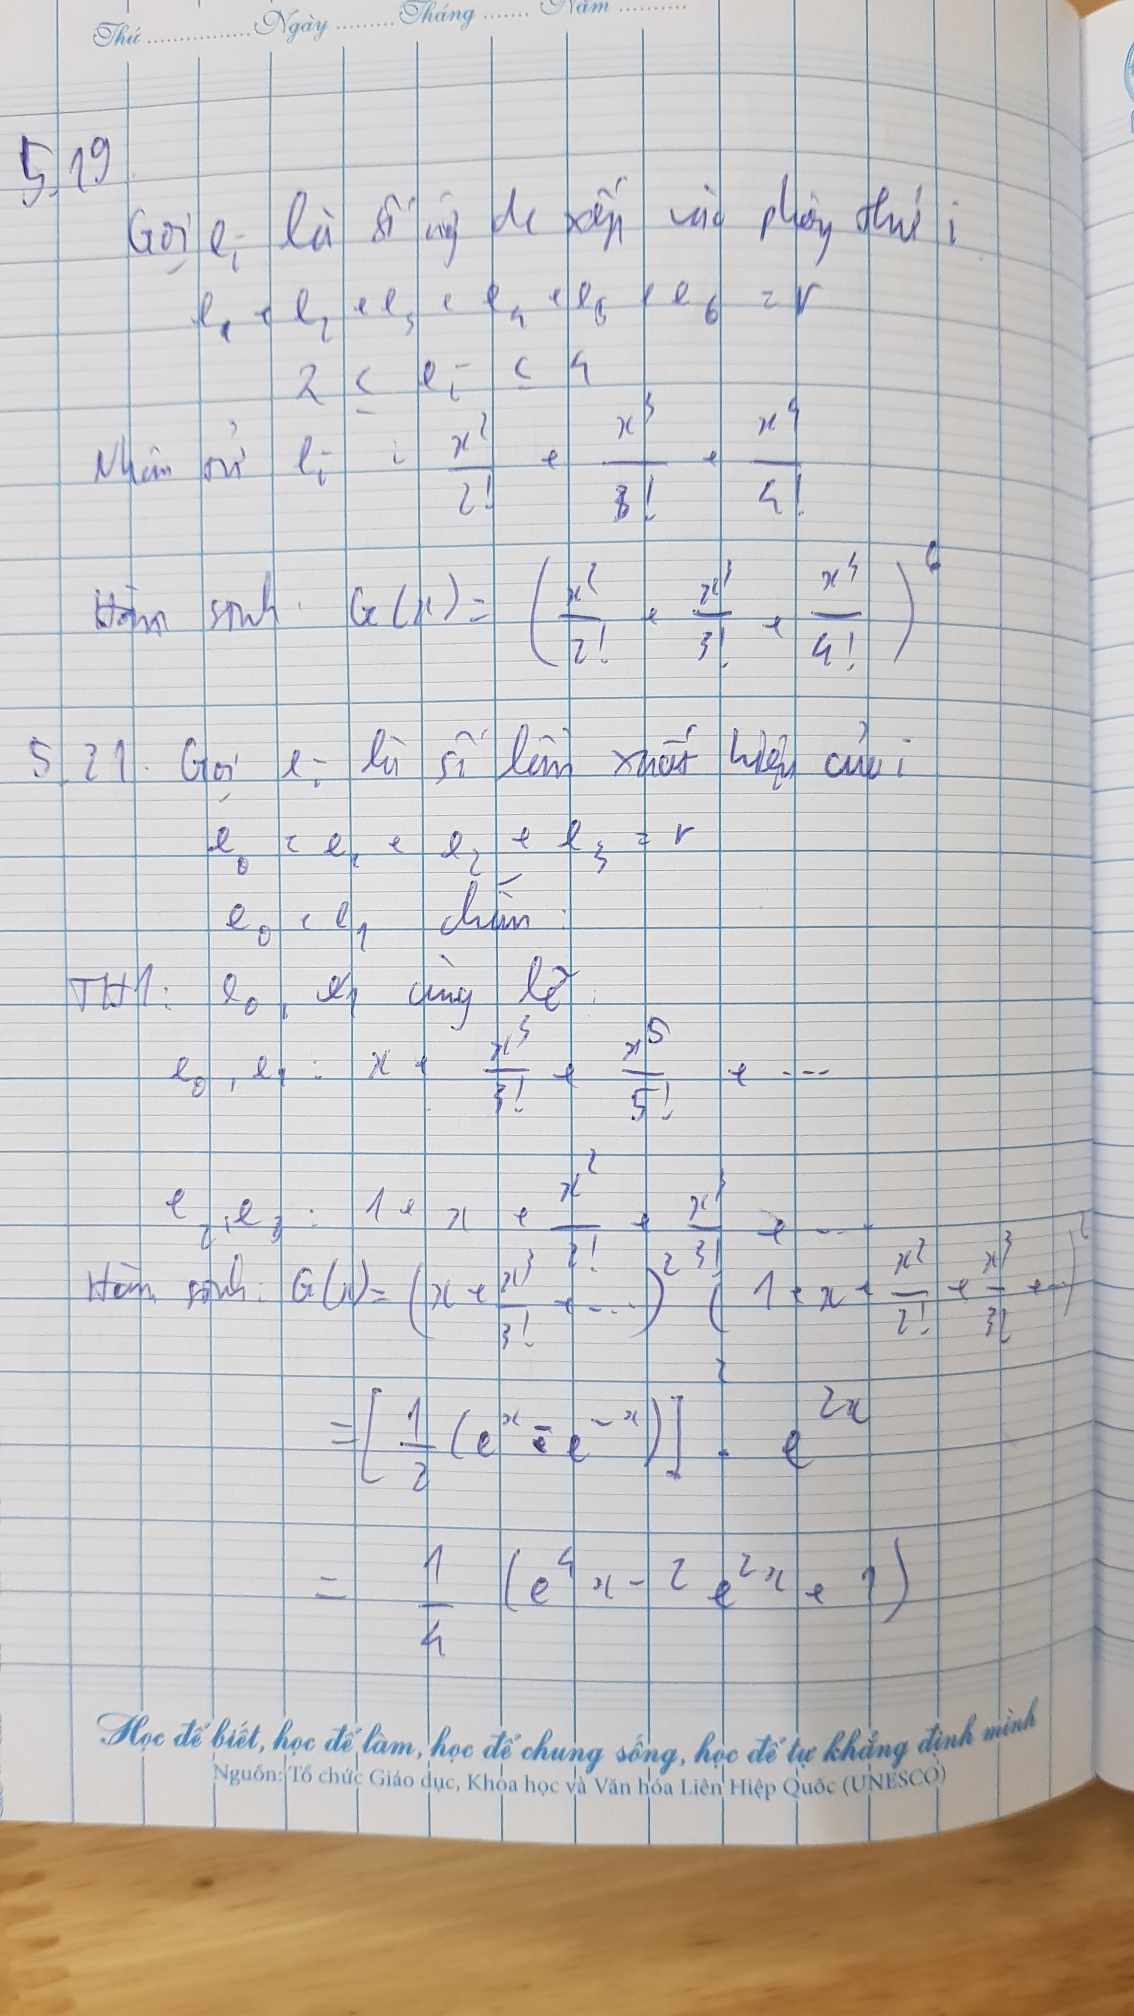 Thứ ............... Ngày ......... Tháng ....... Năm ..........
5.19
Gọi eᵢ là số xếp vào phòng thứ i
e₁ + e₂ + e₃ + e₄ + e₅ + e₆ = r
2 ≤ eᵢ ≤ 4
Nhân tử eᵢ : x²/2! + x³/3! + x⁴/4!
Hàm sinh: G(x) = (x²/2! + x³/3! + x⁴/4!)⁶
5.21. Gọi eᵢ là số lần xuất hiện của i
e₀ + e₁ + e₂ + e₃ = r
e₀ + e₁ chẵn:
TH1: e₀, e₁ cùng lẻ:
e₀, e₁ : x + x³/3! + x⁵/5! + ...
e₂, e₃ : 1 + x + x²/2! + x³/3! + ...
Hàm sinh: G(x) = (x + x³/3! + ...)² (1 + x + x²/2! + x³/3! + ...)²
= [1/2 (eˣ - e⁻ˣ)]² . e²ˣ
= 1/4 (e⁴x - 2e²ˣ + 1)
Học để biết, học để làm, học để chung sống, học để tự khẳng định mình
Nguồn: Tổ chức Giáo dục, Khoa học và Văn hóa Liên Hiệp Quốc (UNESCO)